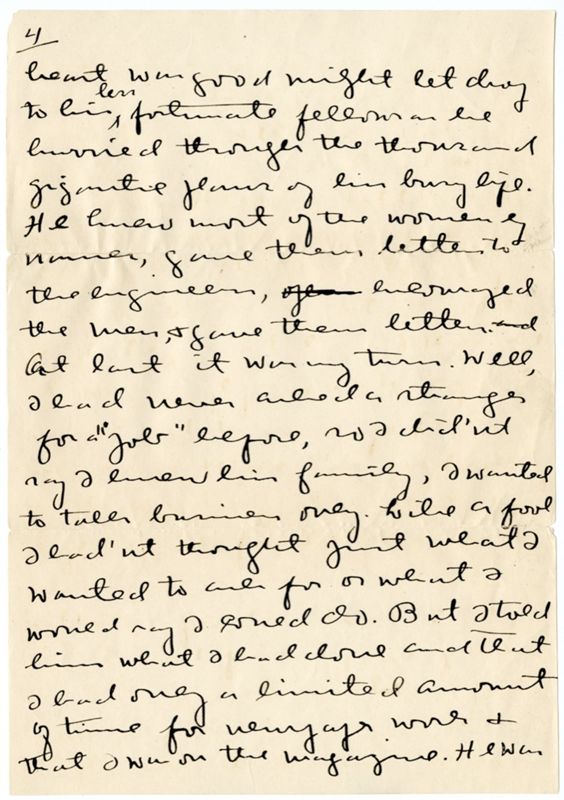 4
heart was good might let drop
to his less fortunate fellows as he
hurried through the thousand
gigantic plans of his busy life.
He knew most of the women by
names, gave them letters to
the engineers, encouraged
the men, & gave them letters and
At last it was my turn. Well,
I had never asked a stranger
for a "job" before, so I did'nt
say I knew his family, I wanted
to talk business only. Like a fool
I had'nt thought just what I
wanted to ask for or what I
would say I could do. But I told
him what I had done and that
I had only a limited amount
of time for newspaper work &
that I was on the magazine. He was